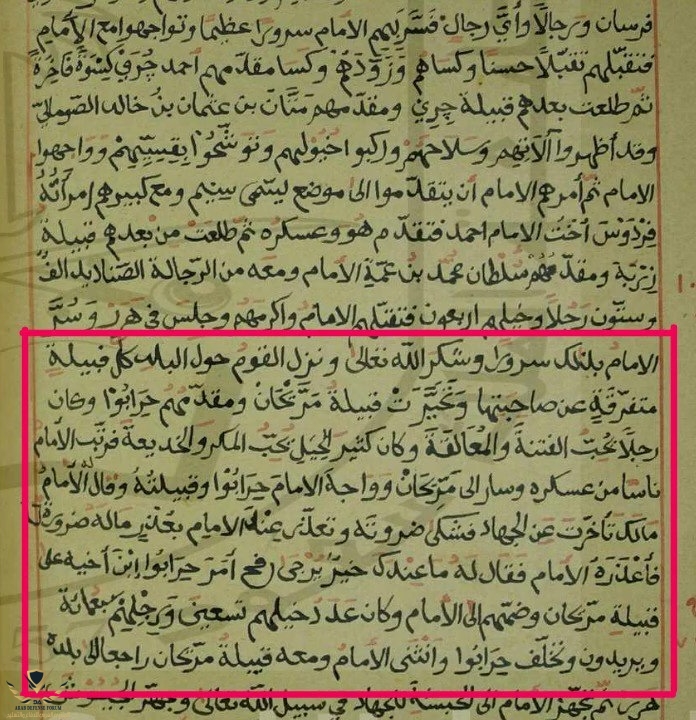 فرسان ورجالا وأيّ رجال فسرّ بهم الامام سرورا عظيما وتواجهوا مع الامام
فتقبّلهم تقبّلا حسنا وكساهم وزوّدهم وكسا مقدّمهم احمد جُرَيْ كِسْوَةً فَاخِرَةً
ثم طلعت بعدهم قبيلة جِرِيْ ومقدّمهم مَتَّانَ بن عثمان بن خالد الصّوماليّ
وقد أظهروا آلاتهم وسلاحهم وركبوا خيولهم وتوشّحُوْا بقسيّهم وواجهوا
الامام ثم أمرهم الامام أن يتقدّموا الى موضع يسمى سِيْم ومع كبيرهم إمرأتُهُ
فِرْدَوْسَ أُخْتُ الامام احمد فتقدّم هو وعسكره ثم طلعت من بعدهم قبيلة
زَرْبَة ومقدّمهم سُلطان محمّد بن عَمّة الامام ومعه من الرّجالة الصّناديد الفُ
وستّون رَجُلا وخيلهم اربعون فتقبّلهم الامام واكرمهم وجلس في هَرَرْ وَسُرَّ
الامام بذلك سرورا وشكر الله تعالى ونزل القوم حول البلد كلّ قبيلة
متفرّقةٍ عن صاحبتها وتَخَيَّرَتْ قبيلةُ مَرَّيْحَانْ ومقدّمهم حِرَابُوْا وكان
رجلًا يُحِبُّ الفتنةَ والمُخالفَةَ وكان كثير الحِيَل يُحِبّ المكر والخديعة فرتّب الامام
ناسا من عسكره وسار الى مَرّيحَانْ وواجهَ الامامَ حِرَابُوْا وقبيلتُهُ وقال له الامامُ
مالك تأخّرتَ عن الجهاد فشكى ضرورته وتعذّر عند الامام بعُذرٍ ماله ضرورة
فأعْذَرَهُ الامام فقال له ما عندك خيرٌ يُرْجى رفع أمرَ حِرابُوا إبْنَ أخيه على
قبيلة مرّيحان وضمّهم الى الامام وكان عدد خيلهم تسعين وَرِجْلِهِمْ سبعمائة
ويزيدون وتخلّف حِرَابُوا وانثنى الامام ومعه قبيلة مرّيحان راجعا الى بلده
هَرَرْ ثم تجهّز الامام الى الحبشة للجهاد في سبيل الله تعالى وجهّز الجيوش
ARAB DEFENSE FORUM